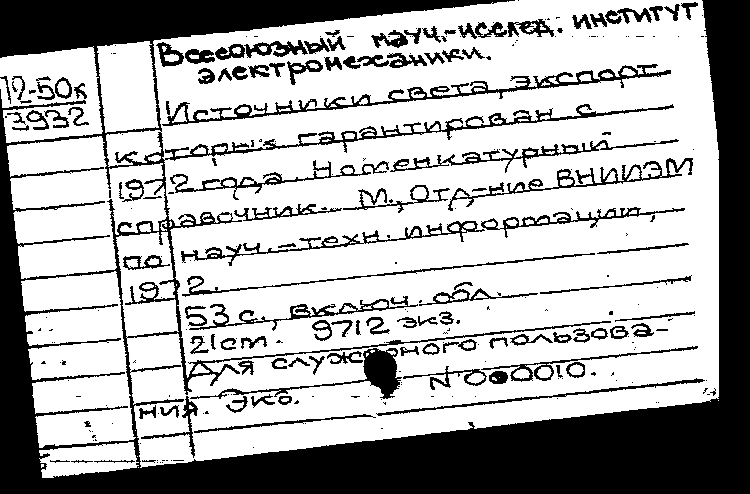 Всесоюзный науч.-исслед. институт
электромеханики.
12-50к
3932
Источники света, экспорт
которых гарантирован с
1972 года. Номенкатурный
справочник. М., Отд-ние ВНИИЭМ
по науч.-техн. информации,
1972.
53 с., включ. обл.
21см. 9712 экз.
Для служебного пользова-
ния. Экз. №000010.